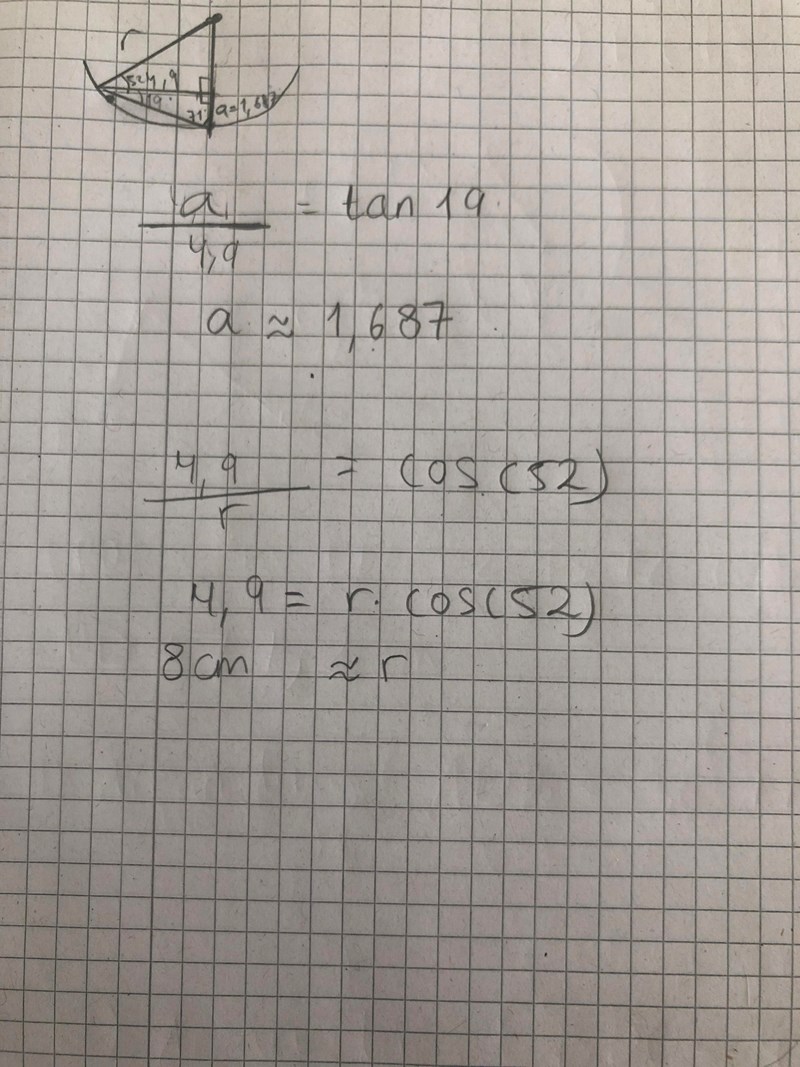 r
52 4,9
19°
71° a=1,687
a = tan 19
4,9
a ≈ 1,687
4,9 = cos(52)
r
4,9 = r. cos(52)
8cm ≈ r